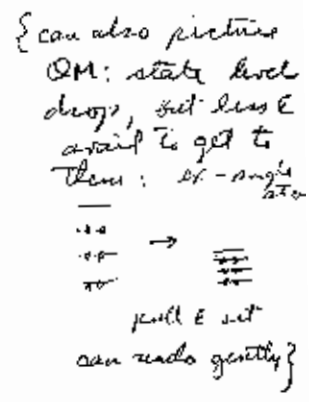 {can also picture
QM: state level
drop, but less E
avail to get to
them: ex - single
atom
→
pull E out
can undo gently}